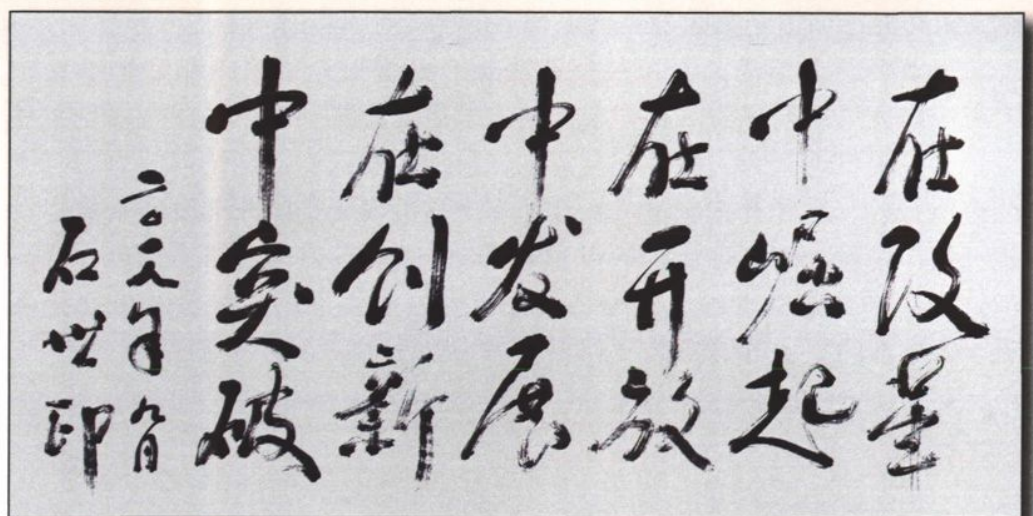 在改革
中崛起
在开放
中发展
在创新
中突破
二〇一八年九月
石世印